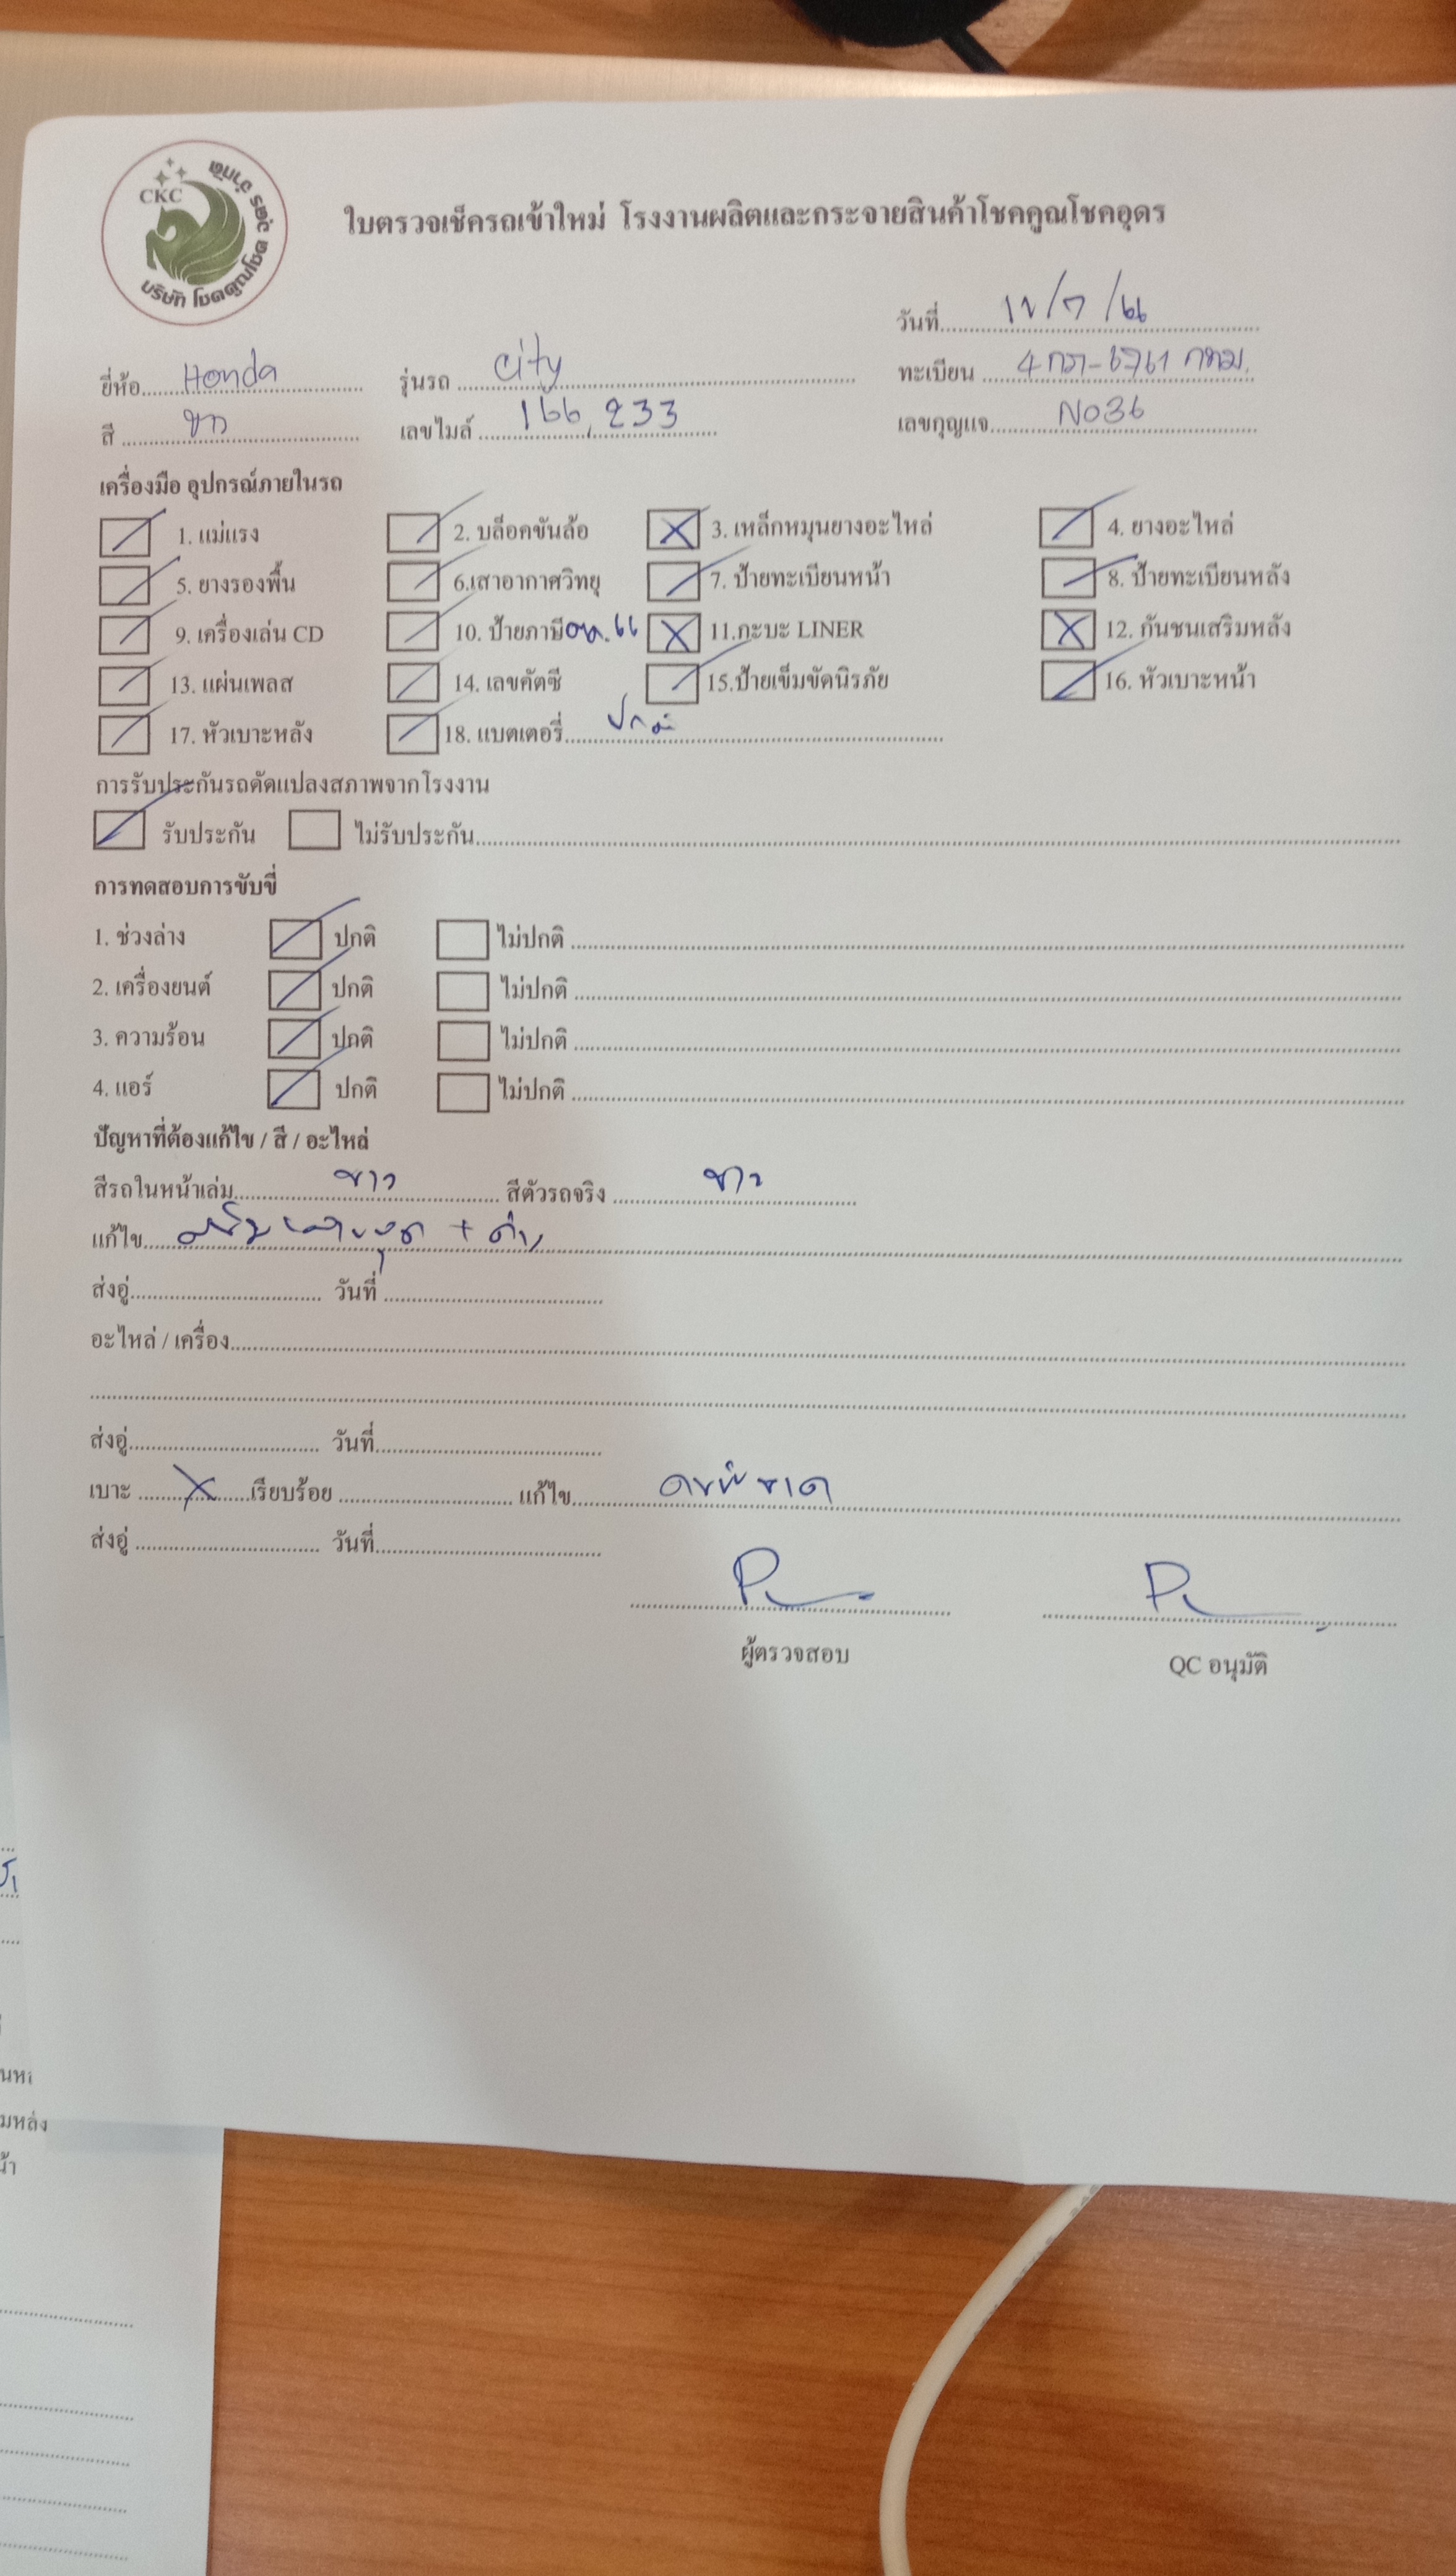 CKC
บริษัท โชคคูณโชค อุดร จำกัด
ใบตรวจเช็ครถเข้าใหม่ โรงงานผลิตและกระจายสินค้าโชคคูณโชคอุดร
วันที่ 12/7/66
ยี่ห้อ Honda รุ่นรถ City ทะเบียน กทม.
สี ขาว เลขไมล์ 166,233 เลขกุญแจ NO36
เครื่องมือ อุปกรณ์ภายในรถ
/ 1. แม่แรง / 2. บล็อคขันล้อ X 3. เหล็กหมุนยางอะไหล่ / 4. ยางอะไหล่
/ 5. ยางรองพื้น / 6.เสาอากาศวิทยุ / 7. ป้ายทะเบียนหน้า / 8. ป้ายทะเบียนหลัง
/ 9. เครื่องเล่น CD / 10. ป้ายภาษี 66 X 11.กะบะ LINER X 12. กันชนเสริมหลัง
/ 13. แผ่นเพลส / 14. เลขคัตซี / 15.ป้ายเข็มขัดนิรภัย / 16. หัวเบาะหน้า
/ 17. หัวเบาะหลัง / 18. แบตเตอรี่ ปกติ
การรับประกันรถดัดแปลงสภาพจากโรงงาน
/ รับประกัน ไม่รับประกัน
การทดสอบการขับขี่
1. ช่วงล่าง / ปกติ ไม่ปกติ
2. เครื่องยนต์ / ปกติ ไม่ปกติ
3. ความร้อน / ปกติ ไม่ปกติ
4. แอร์ / ปกติ ไม่ปกติ
ปัญหาที่ต้องแก้ไข / สี / อะไหล่
สีรถในหน้าเล่ม ขาว สีตัวรถจริง ขาว
แก้ไข
ส่งอู่ วันที่
อะไหล่ / เครื่อง
ส่งอู่ วันที่
เบาะ X เรียบร้อย แก้ไข
ส่งอู่ วันที่
ผู้ตรวจสอบ QC อนุมัติ